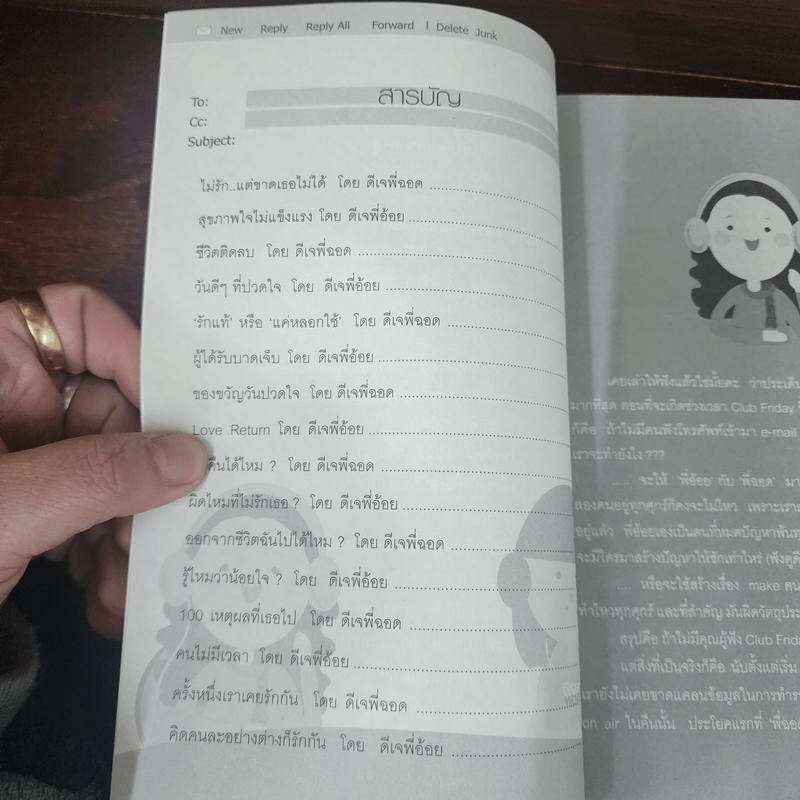 New Reply Reply All Forward | Delete Junk
To: สารบัญ
Cc:
Subject:
ไม่รัก..แต่ขาดเธอไม่ได้ โดย ดีเจพี่ฉอด
สุขภาพใจไม่แข็งแรง โดย ดีเจพี่อ้อย
ชีวิตติดลบ โดย ดีเจพี่ฉอด
วันดีๆ ที่ปวดใจ โดย ดีเจพี่อ้อย
'รักแท้' หรือ 'แค่หลอกใช้' โดย ดีเจพี่ฉอด
ผู้ได้รับบาดเจ็บ โดย ดีเจพี่อ้อย
ของขวัญวันปวดใจ โดย ดีเจพี่ฉอด
Love Return โดย ดีเจพี่อ้อย
คืนได้ไหม ? โดย ดีเจพี่ฉอด
ผิดไหมที่ไม่รักเธอ ? โดย ดีเจพี่อ้อย
ออกจากชีวิตฉันไปได้ไหม ? โดย ดีเจพี่ฉอด
รู้ไหมว่าน้อยใจ ? โดย ดีเจพี่อ้อย
100 เหตุผลที่เธอไป โดย ดีเจพี่ฉอด
คนไม่มีเวลา โดย ดีเจพี่อ้อย
ครั้งหนึ่งเราเคยรักกัน โดย ดีเจพี่ฉอด
คิดคนละอย่างต่างก็รักกัน โดย ดีเจพี่อ้อย
เคยเล่าให้ฟังแล้วใช่มั้ยคะ ว่าประเด็น
มากที่สุด ตอนที่จะเกิดช่วงเวลา Club Friday
ก็คือ ถ้าไม่มีคนฟังโทรศัพท์เข้ามา e-mail
เราจะทำยังไง ???
..... จะให้ 'พี่อ้อย' กับ 'พี่ฉอด' มา
สองคนอยู่ทุกศุกร์ก็คงจะไม่ไหว เพราะเรา
อยู่แล้ว พี่อ้อยเองเป็นคนที่หมดปัญหา
จะมีใครมาสร้างปัญหาให้ซักเท่าไหร่
.... หรือจะใช้สร้างเรื่อง make คน
ทำไหวทุกศุกร์ และที่สำคัญ มันผิดวัตถุประ
สรุปคือ ถ้าไม่มีคุณผู้ฟัง Club Frida
แต่สิ่งที่เป็นจริงก็คือ นับตั้งแต่เริ่ม
เรายังไม่เคยขาดแคลนข้อมูลในการทำรา
on air ในคืนนั้น ประโยคแรกที่ 'พี่ฉอด